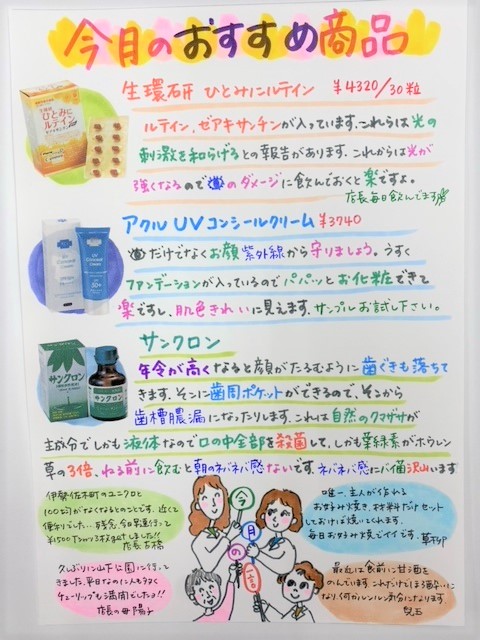 今月のおすすめ商品
生環研 ひとみにルテイン ¥4320/30粒
ルテイン、ゼアキサンチンが入っています。これらは光の
刺激を和らげるとの報告があります。これからは光が
強くなるので のダメージに飲んでおくと楽ですよ。
店長毎日飲んでます
アクル UVコンシールクリーム ¥3740
だけでなくお顔 紫外線から守りましょう。うすく
ファンデーションが入っているのでパパッとお化粧できて
楽ですし、肌色きれいに見えます。サンプルお試し下さい。
サンクロン
年令が高くなると顔がたるむように歯ぐきも落ちて
きます。そこに歯周ポケットができるので、そこから
歯槽膿漏になったりします。これは自然のクマザサが
主成分でしかも液体なので口の中全部を殺菌して、しかも葉緑素がホウレン
草の3倍、ねる前に飲むと朝のネバネバ感ないです。ネバネバ感にバイ菌沢山います
ひとみに
ルテイン
UV
50+
サンクロン
サンクロン
伊勢佐木町のユニクロと
100均がなくなるとのことです。近くて
便利でした…残念。
¥1500
店長 古橋
久しぶりに山下公園に行って
きました。平日なのに人も多く
チューリップも満開でしたよ!!
店長の母 陽子
唯一、主人が作れる
お好み焼き、材料だけセット
しておけば焼いてくれます。
毎日お好み焼でイイです。
最近は食前に甘酒を
のんでいます。これだけでほろ酔いに
なり、何かルンルン気分になります。
児玉
今
月
の